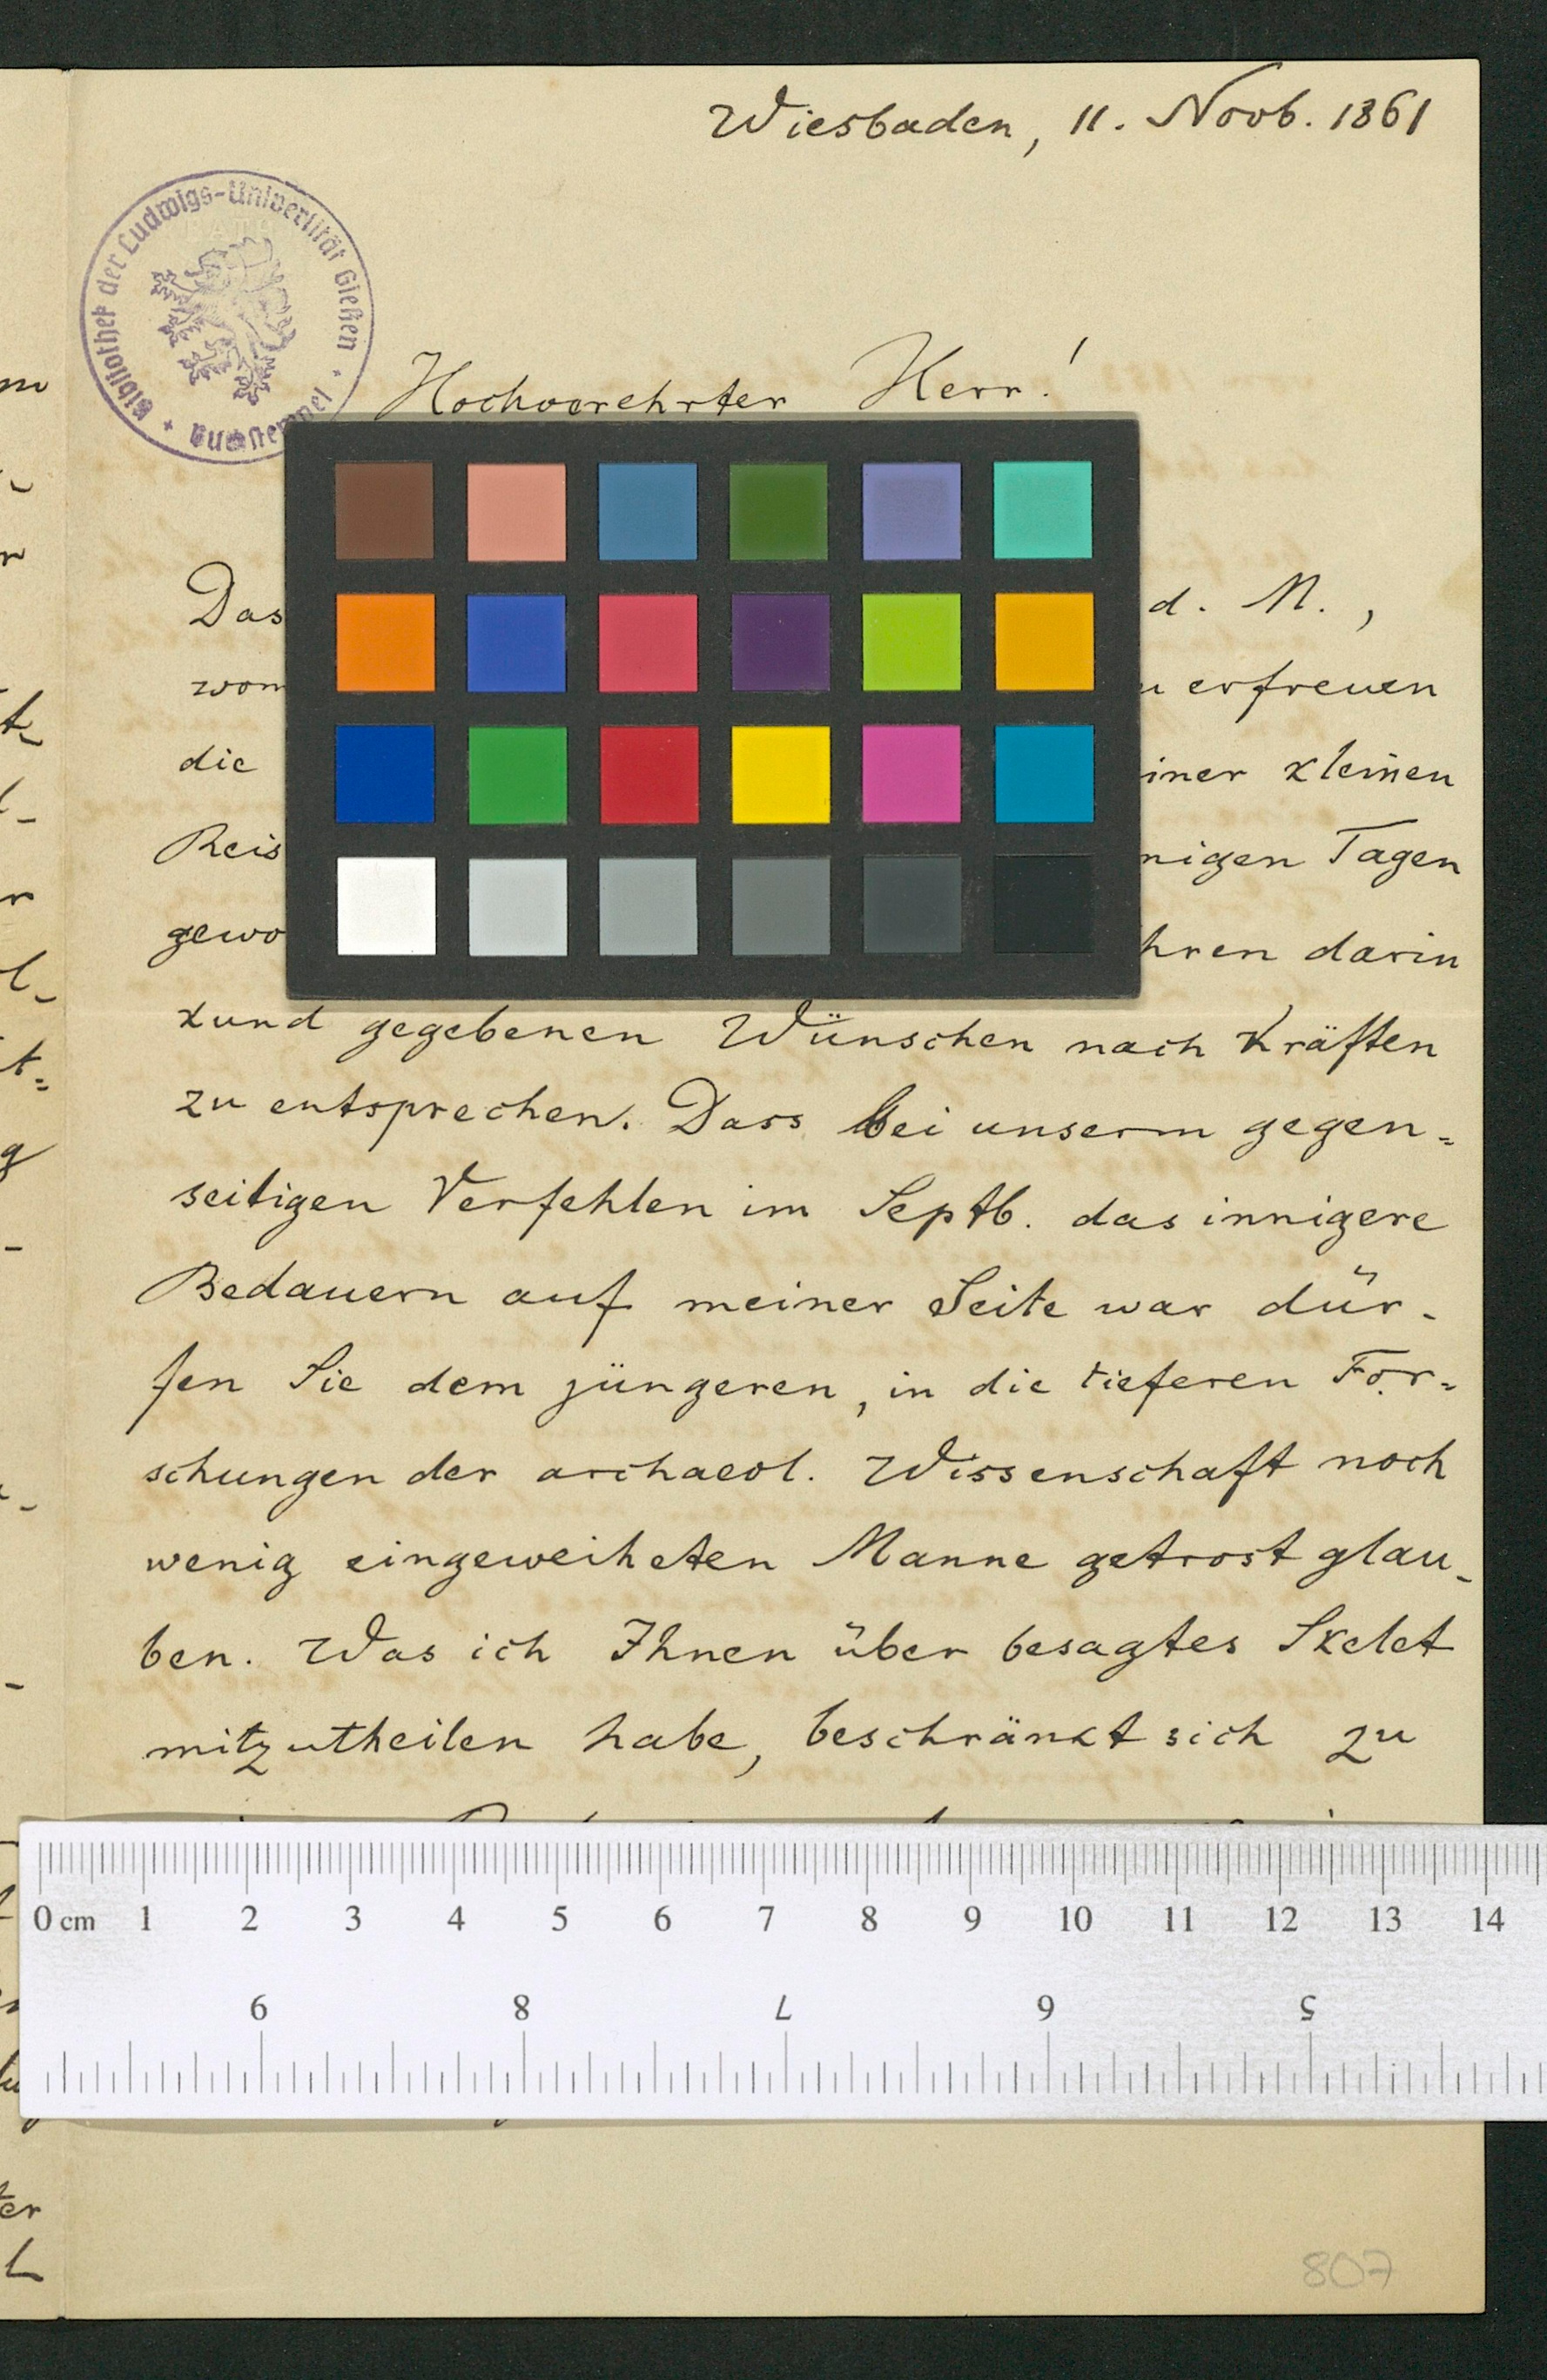 Wiesbaden, 11. Novb. 1861
Bibliothek der Ludwigs-Universität Gießen
Hochverehrter Herr!
Das d. M.,
erfreuen
die kleinen
Tagen
darin
kund gegebenen Wünschen nach Kräften
zu entsprechen. Dass bei unserm gegen=
seitigen Verfehlen im Septb. das innigere
Bedauern auf meiner Seite war dür-
fen Sie dem jüngeren, in die tieferen For=
schungen der archaeol. Wissenschaft noch
wenig eingeweiheten Manne getrost glau-
ben. Was ich Ihnen über besagtes Skelet
mitzutheilen habe, beschränkt sich zu
0 cm 1 2 3 4 5 6 7 8 9 10 11 12 13 14
9 8 7 6 5
807